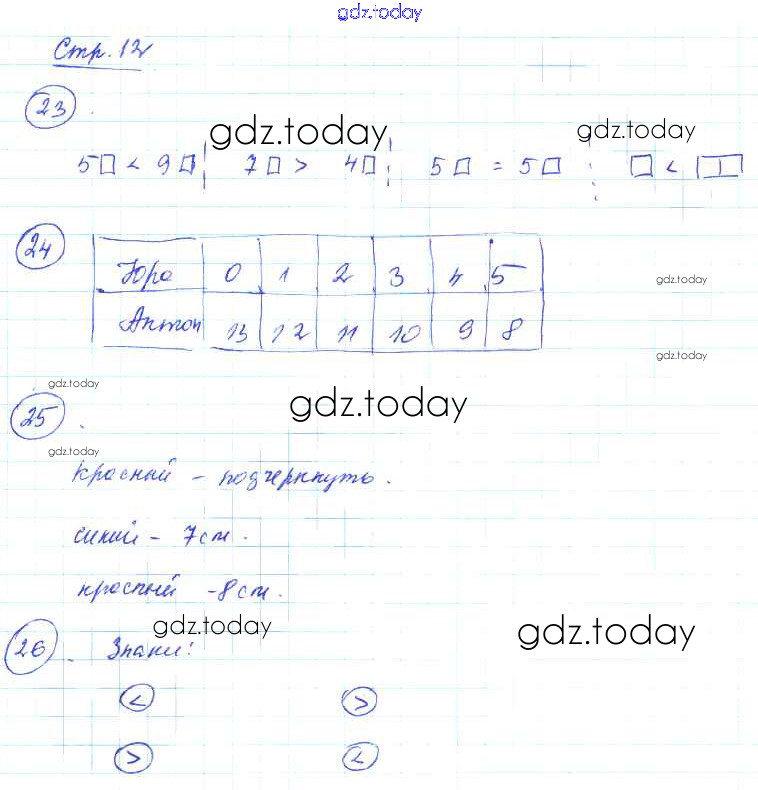 gdz.today
Стр. 12
23.
gdz.today gdz.today
5□ < 9□ 7□ > 4□ 5□ = 5□ □ < □□
24
Юра 0 1 2 3 4 5
gdz.today
Антон 13 12 11 10 9 8
gdz.today
gdz.today
25.
gdz.today
gdz.today
красный – подчеркнуть.
синий – 7 см.
красный – 8 см.
gdz.today gdz.today
26. Знаки:
< >
> <